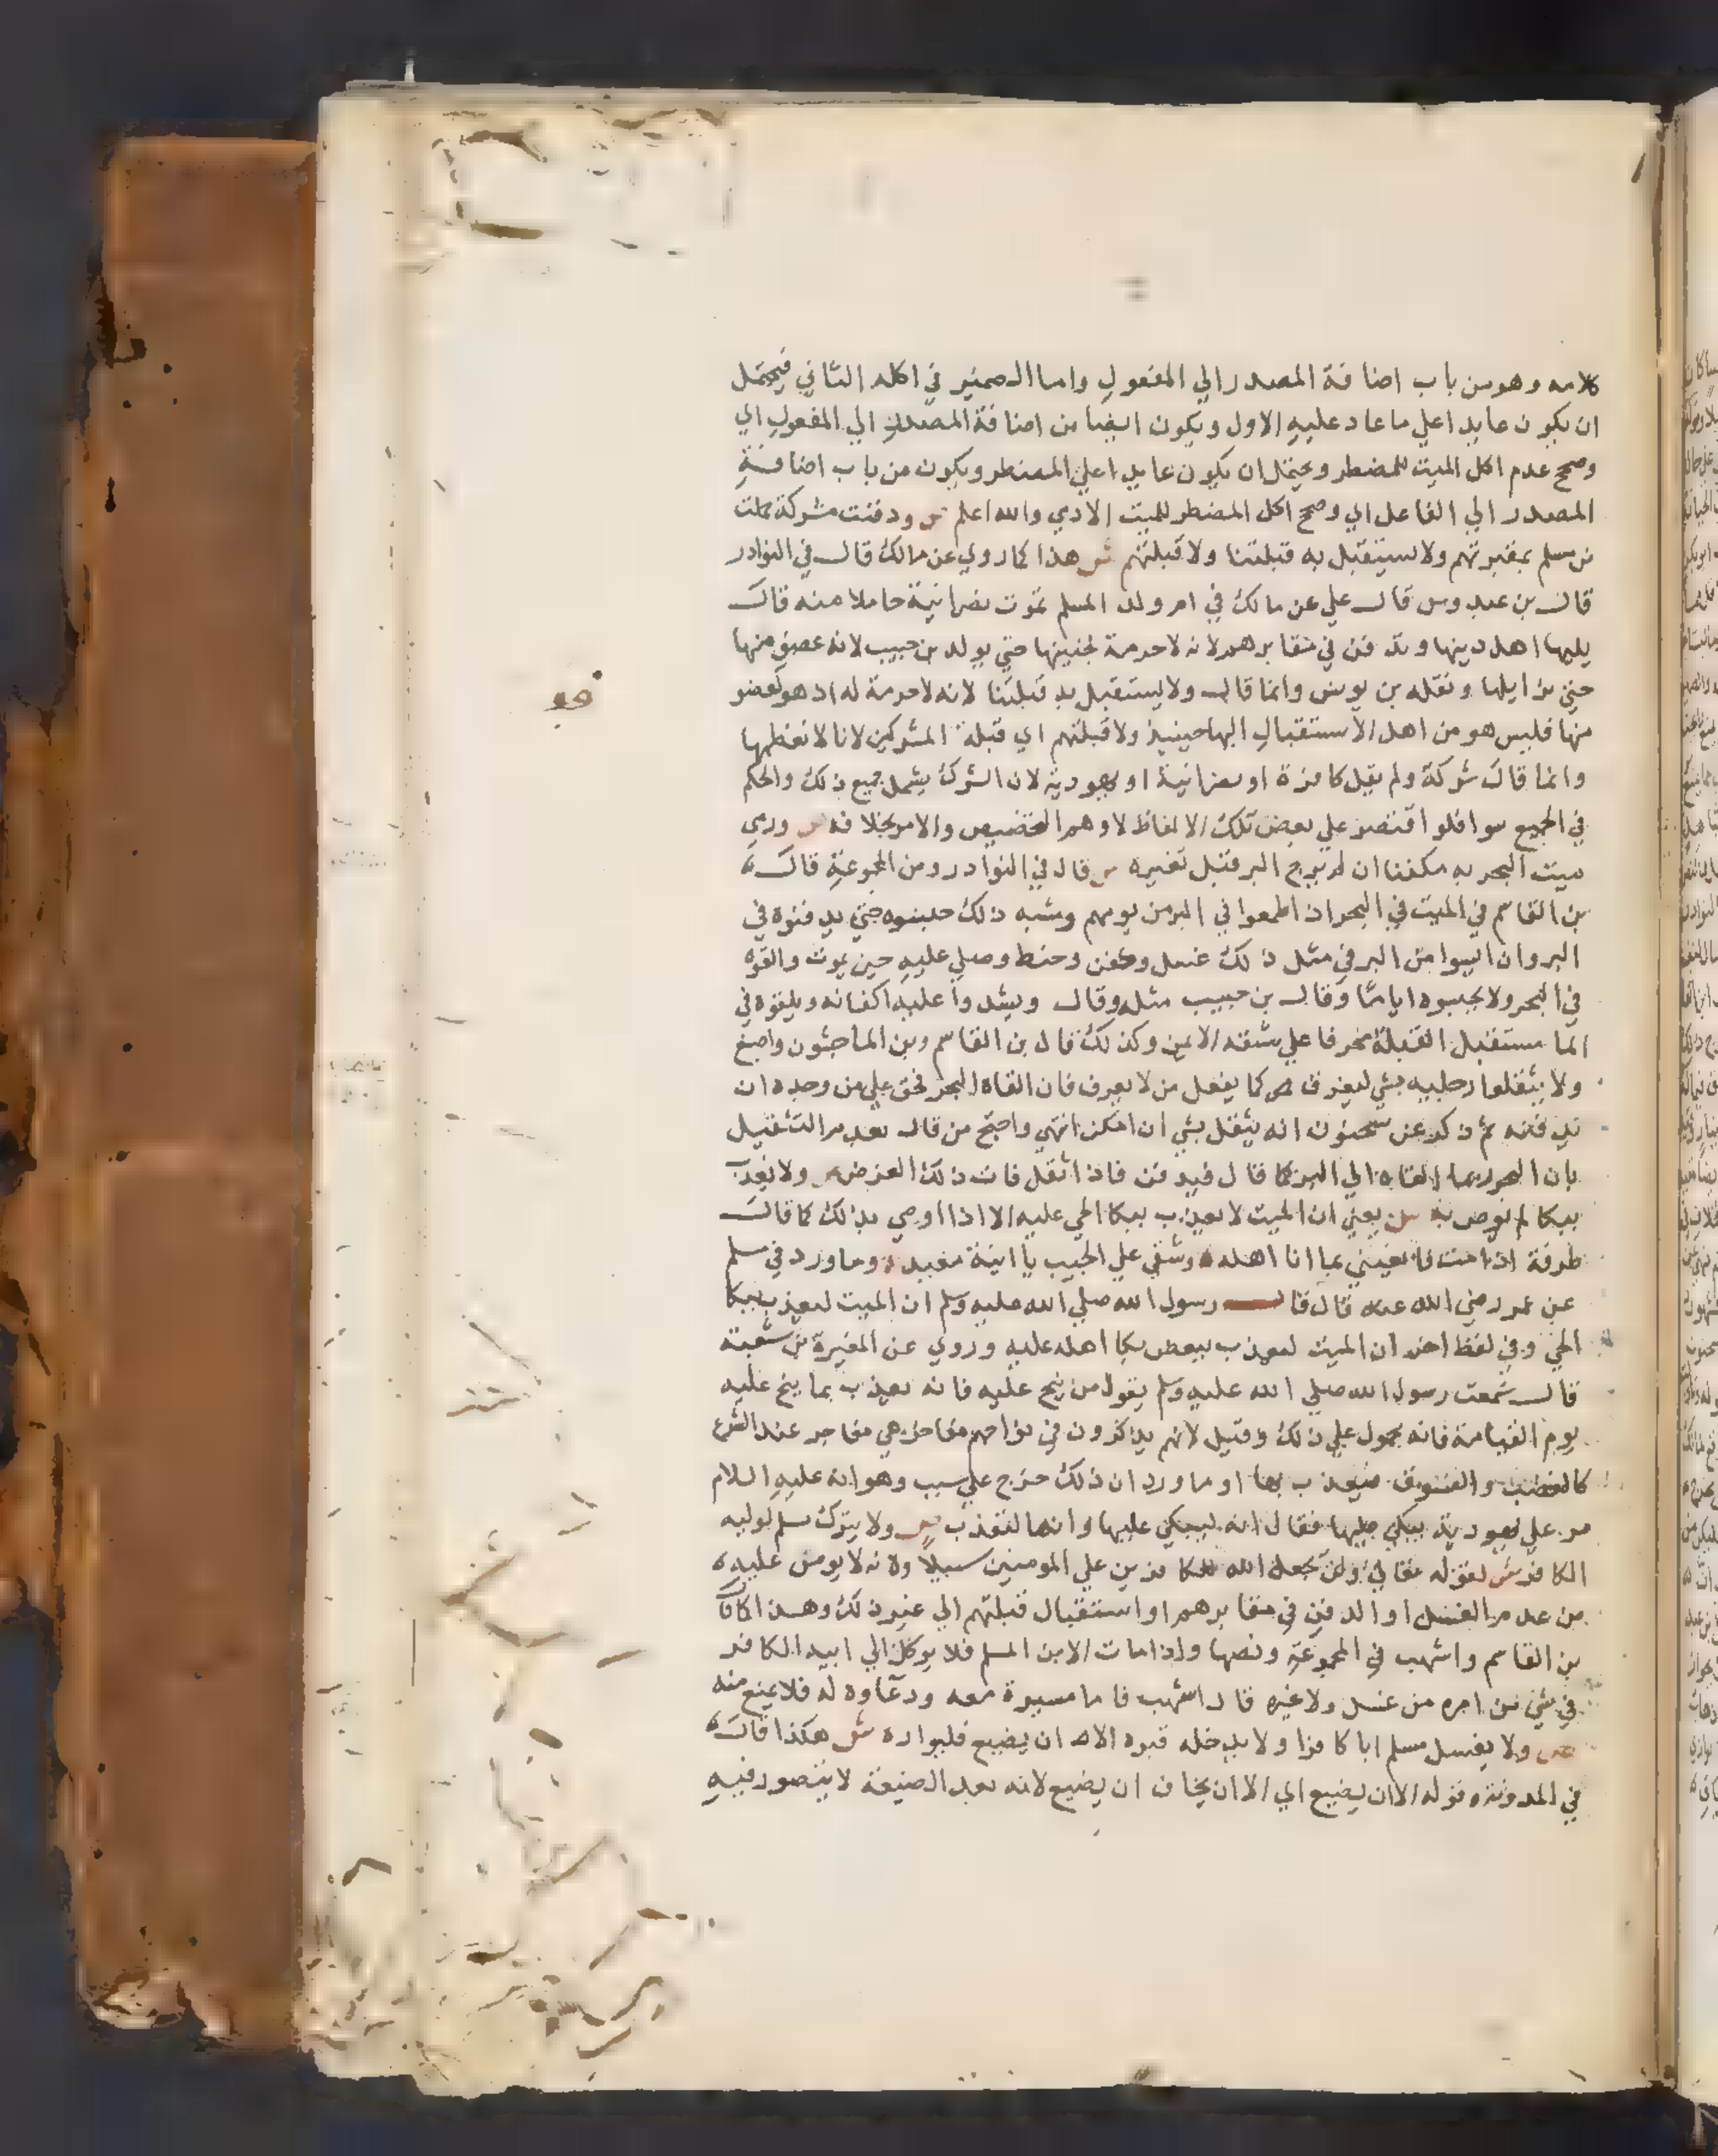 كلامه وهو من باب اضافة المصدر الي المفعول واما الضمير في اكله الثاني فيحتمل
ان يكون عايدا علي ما عاد عليه الاول ويكون ايضا من اضافة المصدر الي المفعول اي
وصحح عدم اكل الميت للمضطر ويحتمل ان يكون عايدا علي المضطر ويكون من باب اضافة
المصدر الي الفاعل اي وصحح اكل المضطر للميت الادمي والله اعلم ص ودفنت مشركة حملت
من مسلم بمقبرتهم ولا يستقبل به قبلتنا ولا قبلتهم ش هذا كما روي عن مالك قال في النوادر
قال بن عبدوس قال علي عن مالك في ام ولد المسلم تموت نصرانية حاملا منه قال
يليها اهل دينها وتدفن في مقابرهم لانه لا حرمة لجنينها حتي يولد بن حبيب لانه عضو منها
حتي يزايلها ونقله بن يونس وانما قال ولا يستقبل به قبلتنا لانه لا حرمة له اذ هو كعضو
منها فليس هو من اهل الاستقبال اليها حينيذ ولا قبلتهم اي قبلة المشركين لانا لا نعظمها
وانما قال مشركة ولم يقل كافرة او نصرانية او يهودية لان الشرك يشمل جميع ذلك والحكم
في الجميع سوا فلو اقتصر علي بعض تلك الالفاظ لاوهم التخصيص والامر بخلافه ص ورمي
ميت البحر به مكفنا ان لم يرج البر قبل تغيره ش قال في النوادر ومن المجموعة قال
بن القاسم في الميت في البحر اذا طمعوا في البر من يومهم وشبه ذلك حبسوه حتي يدفنوه في
البر وان ايسوا من البر في مثل ذلك غسل وكفن وحنط وصلي عليه حين يموت والقوه
في البحر ولا يحبسوه اياما وقال بن حبيب مثله وقال ويشدوا عليه اكفانه ويلقوه في
الما مستقبل القبلة محرفا علي شقه الايمن وكذلك قال بن القاسم وبن الماجشون واصبغ
ولا يثقلوا رجليه بشي ليغرق كما يفعل من لا يعرف فان القاه البحر فحق علي من وجده ان
يدفنه ثم ذكر عن سحنون انه يثقل بشي ان امكن انتهي واحتج من قال بعدم التثقيل
بان البحر ربما القاه الي البر كما قال فيدفن فاذا اثقل فات ذلك الغرض ص ولا يعذب
ببكا لم يوص به ش يعني ان الميت لا يعذب ببكا الحي عليه الا اذا اوصي بذلك كما قال
طرفة اذا مت فانعيني بما انا اهله وشقي علي الجيب يا ابنة معبد وما ورد في مسلم
عن عمر رضي الله عنه قال قال رسول الله صلي الله عليه وسلم ان الميت ليعذب ببكا
الحي وفي لفظ اخر ان الميت ليعذب ببعض بكا اهله عليه وروي عن المغيرة بن شعبة
قال سمعت رسول الله صلي الله عليه وسلم يقول من نيح عليه فانه يعذب بما نيح عليه
يوم القيامة فانه محمول علي ذلك وقيل لانهم يذكرون في نواحهم مفاخر هي مفاجر عند الشرع
كالغضب والفسوق فيعذب بها او ما ورد ان ذلك خرج علي سبب وهو انه عليه السلام
مر علي يهودية يبكي عليها فقال انه ليبكي عليها وانها لتعذب ص ولا يترك مسلم لوليه
الكافر ش لقوله تعالي ولن يجعل الله للكافرين علي المومنين سبيلا ولانه لا يومن عليه
من عدم الغسل او الدفن في مقابرهم او استقبال قبلتهم الي غير ذلك وهذا
بن القاسم واشهب في المجموعة ونصها واذا مات الابن المسلم فلا يوكل الي ابيه الكافر
في شي من امره من غسل ولا غيره قال اشهب فاما مسيره معه ودعاوه له فلا يمنع منه
ص ولا يغسل مسلم ابا كافرا ولا يدخله قبره الا ان يضيع فليواره ش هكذا قال
في المدونة وقوله الا ان يضيع اي الا ان يخاف ان يضيع لانه بعد الضيعة لا يتصور فيه